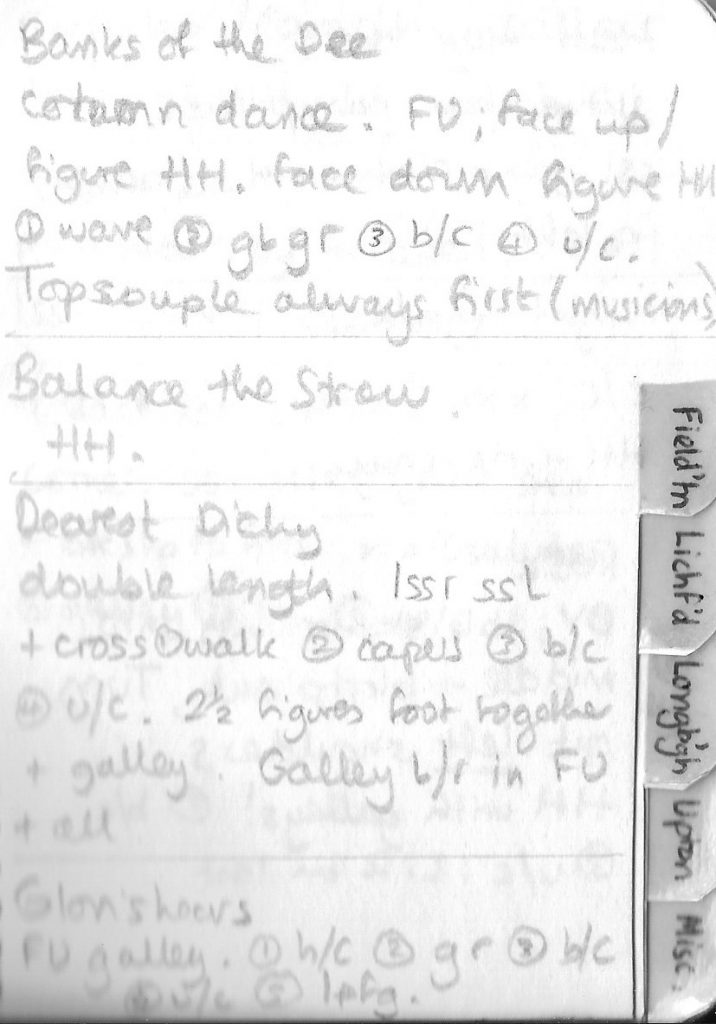 Banks of the Dee
Column dance. FU; face up/
figure HH. face down figure HH
① wave ② gb gr ③ b/c ④ u/c.
Topsouple always first (musicians)
Balance the Straw.
HH.
Dearest Dicky
double length. 1ssr ssL
+ cross ① walk ② capers ③ b/c
④ u/c. 2½ figures foot together
+ galley. Galley b/r in FU
+ all
FU galley. ① h/c ② gr ③ b/c
④ u/c ⑤
Field'tn
Lichf'd
Longb'gh
Upton
Misc.